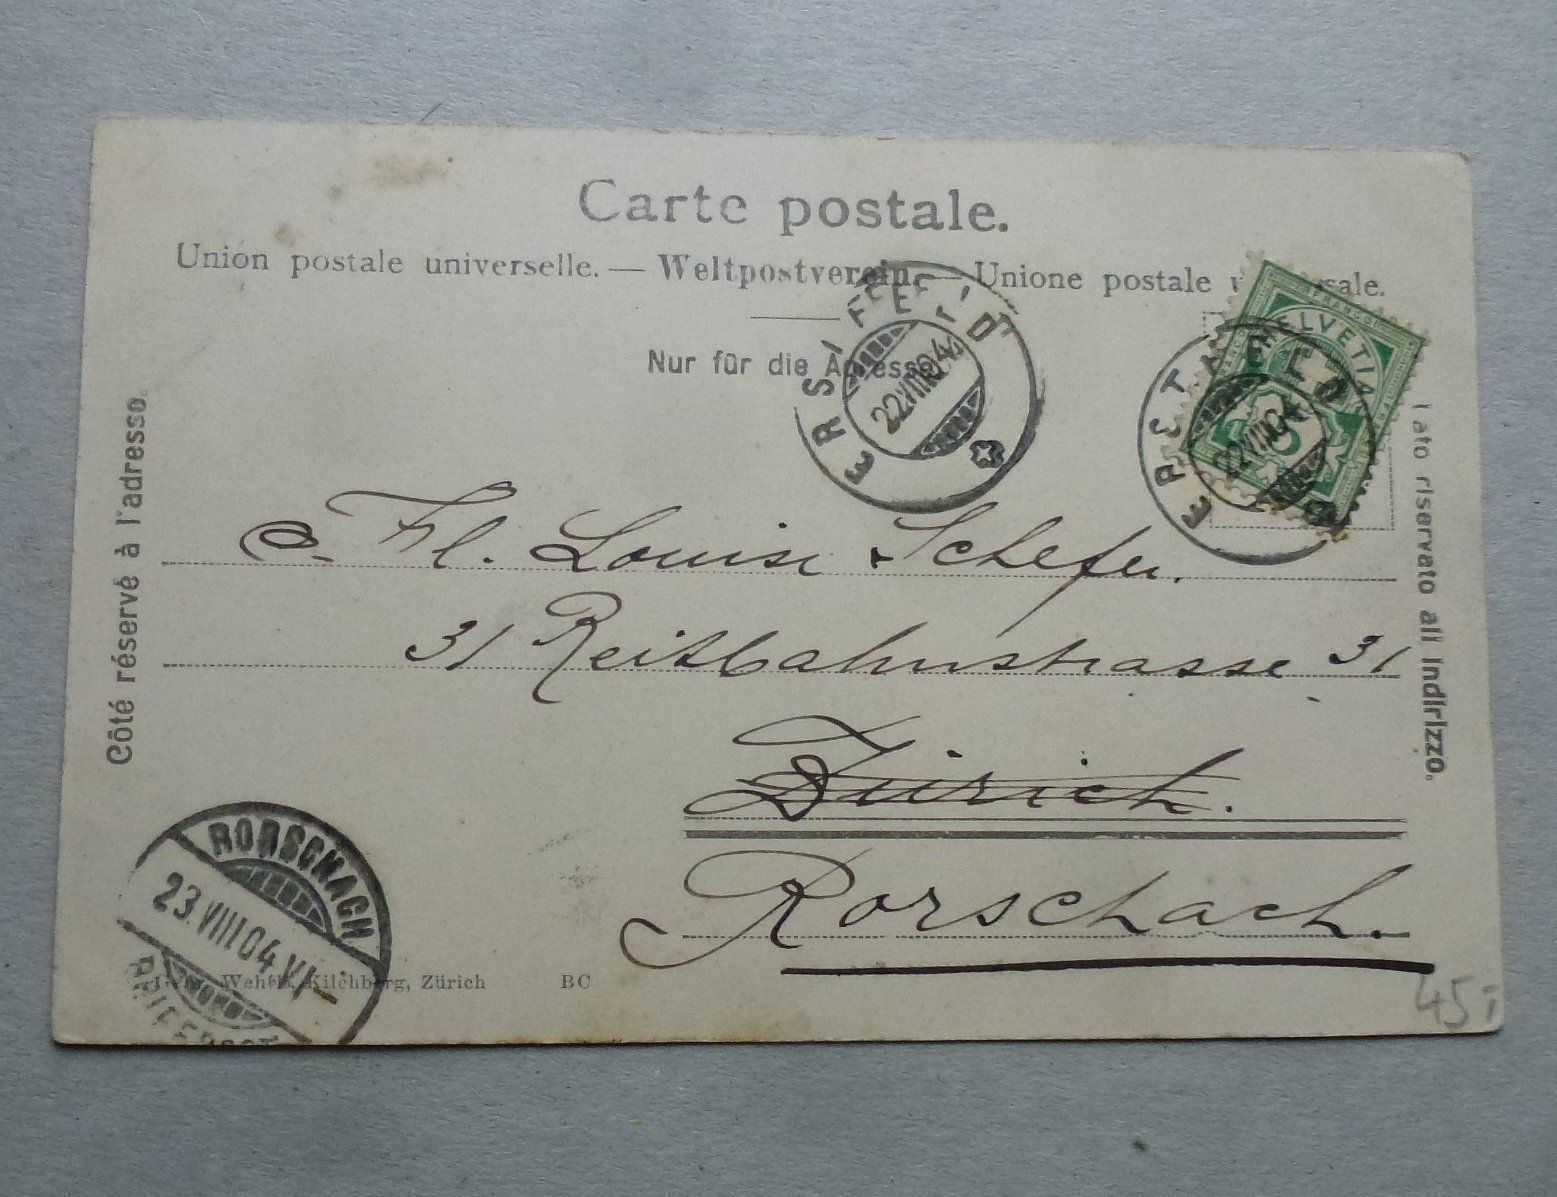 Carte postale.
Union postale universelle. — Weltpostverein. — Unione postale
Nur für die Adresse
Côté réservé à l'adresse.
Lato riservato all indirizzo.
FRANCO
HELVETIA
5
22.VIII.04
22.VIII.04
Fl. Louise Schefer.
31 Reitbahnstrasse 31
Zürich.
Rorschach.
RORSCHACH
23.VIII.04.VI–
BRIEFDIST
Wehrli, Kilchberg, Zürich BC
45.-